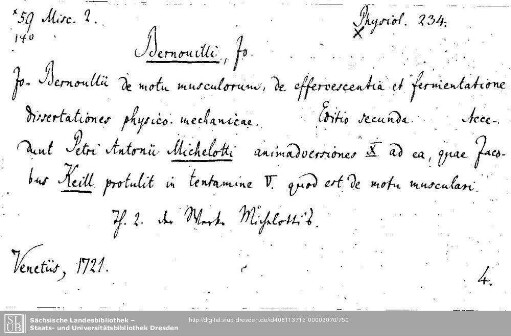 *59 Misc. 2. Physiol. 234.
140 x
Bernouilli, Jo.
Jo. Bernoullii de motu musculorum, de effervescentia et fermentatione
dissertationes physico mechanicae. Editio secunda. Acce-
dunt Petri Antonii Michelotti animadversiones X ad ea, quae Jaco-
bus Keill protulit in tentamine V. quod est de motu musculari.
Th. 2. der Werke Michelotti's.
Venetiis, 1721. 4.
Sächsische Landesbibliothek –
Staats- und Universitätsbibliothek Dresden